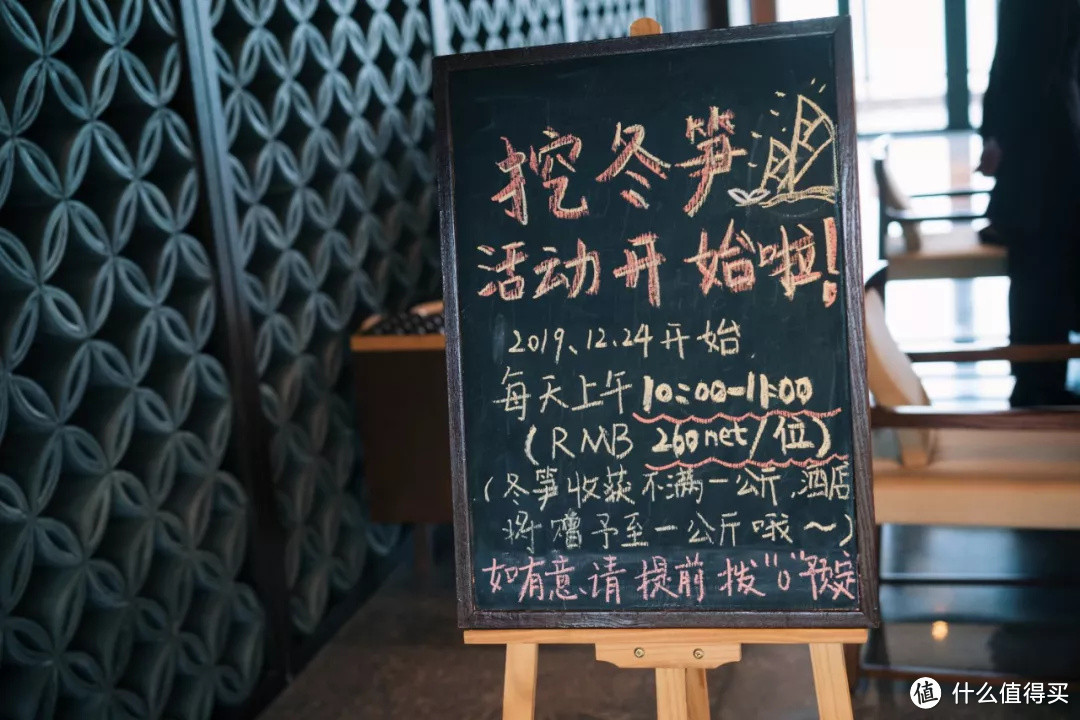 挖冬笋
活动开始啦!
2019、12.24开始
每天上午10:00-11:00
(RMB 260net/位)
(冬笋收获不满一公斤,酒店
将赠予至一公斤哦～)
如有意、请提前拨"0"预定
值 什么值得买